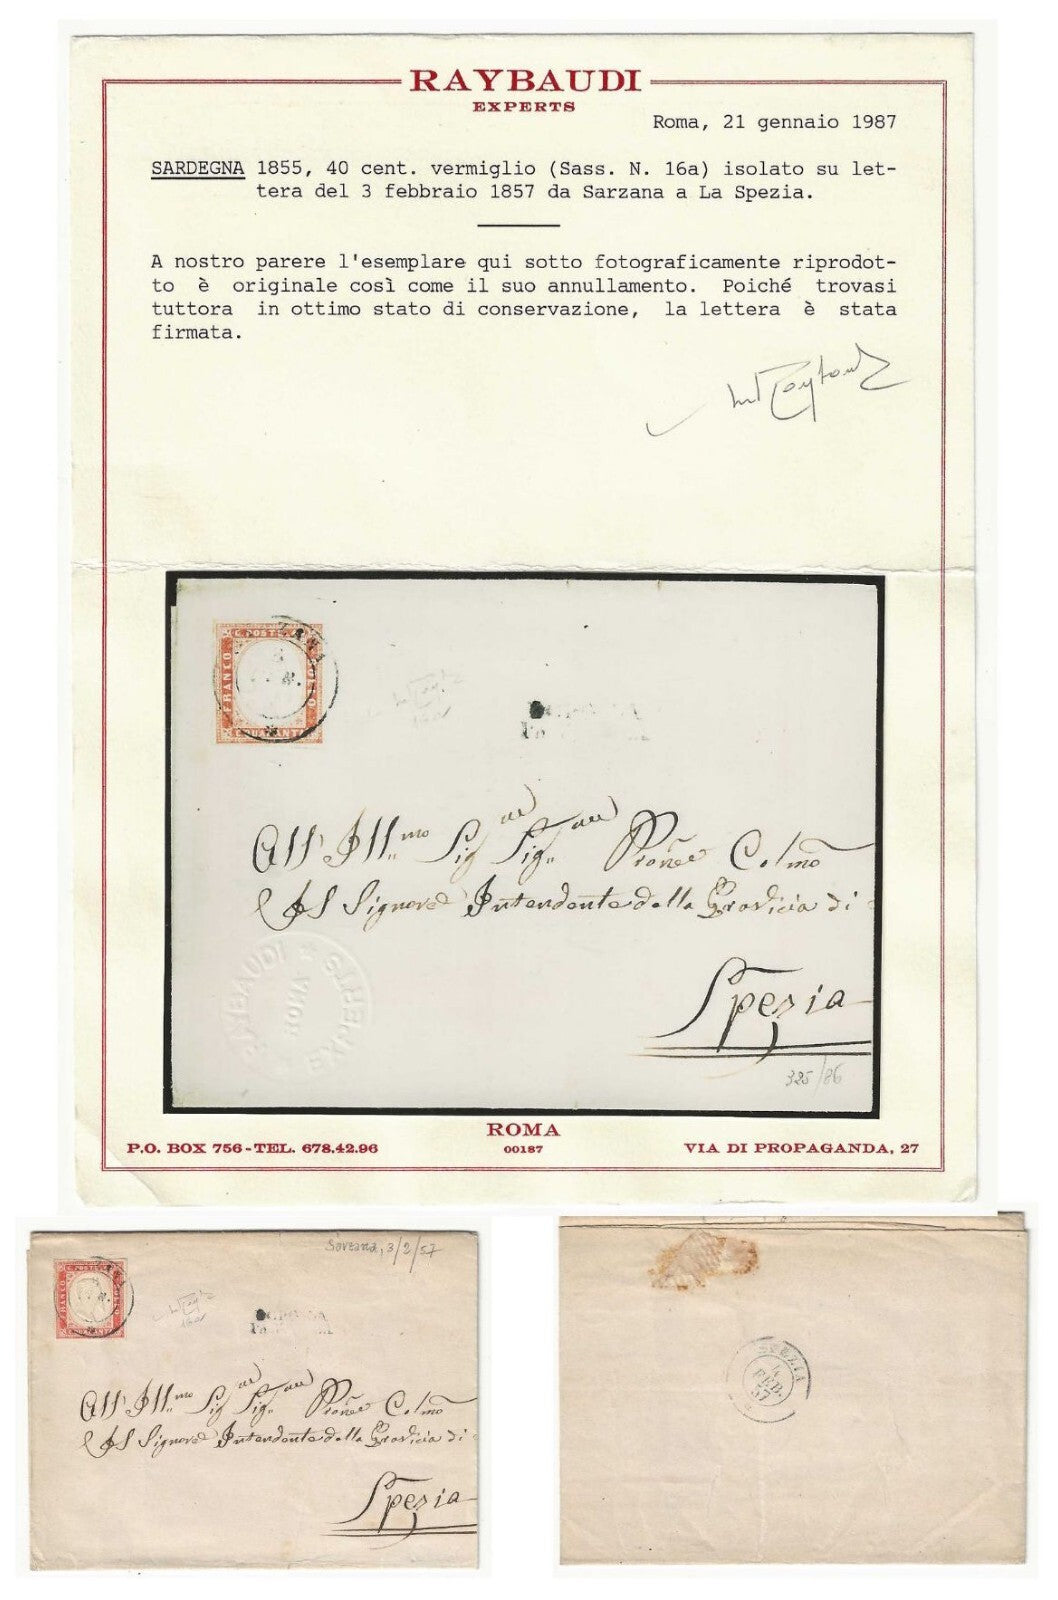 RAYBAUDI
EXPERTS
Roma, 21 gennaio 1987
SARDEGNA 1855, 40 cent. vermiglio (Sass. N. 16a) isolato su let-
tera del 3 febbraio 1857 da Sarzana a La Spezia.
A nostro parere l'esemplare qui sotto fotograficamente riprodot-
to è originale così come il suo annullamento. Poiché trovasi
tuttora in ottimo stato di conservazione, la lettera è stata
firmata.
C. POSTE
FRANCO
All' Ill.mo Sig Sig. Colmo
Il Signore Intendente della Provicia di
Spezia
RAYBAUDI * EXPERTS
ROMA
325/86
ROMA
P.O. BOX 756 - TEL. 678.42.96
00187
VIA DI PROPAGANDA, 27
Sarzana, 3/2/57
C. POSTE
FRANCO
All' Ill.mo Sig Sig. Colmo
Il Signore Intendente della Provicia di
Spezia
SPEZIA
4
FEB.
57